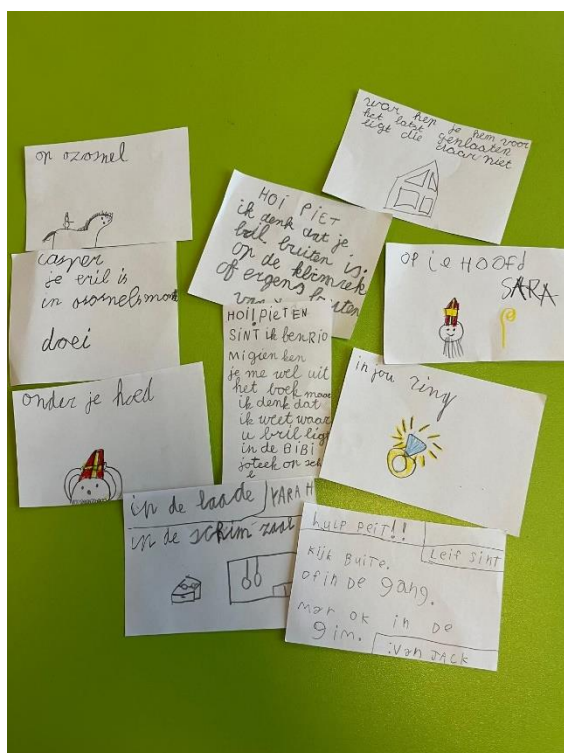 op ozosnel
war hep je hem voor
het latst genlaaten
ligt die daar niet
HOI PIET
ik denk dat je
bril buiten is.
op de klimrek
of ergens buiten
casper
je bril is
in ozosnels
doei
op je HOOfd
SARA
HOI!! PieTEN
SINT ik ben RIO
migien ken
je me wel uit
het boek maar
ik denk dat
ik weet waar
u bril ligt
in de BiBi
joteek op
in jou ring
onder je hoed
in de laade
YARA H
in de schim zaal
hulp Peit!!
Leif Sint
kijk Buite.
ofin De gang.
mar ok in De
gim.
:van JACK